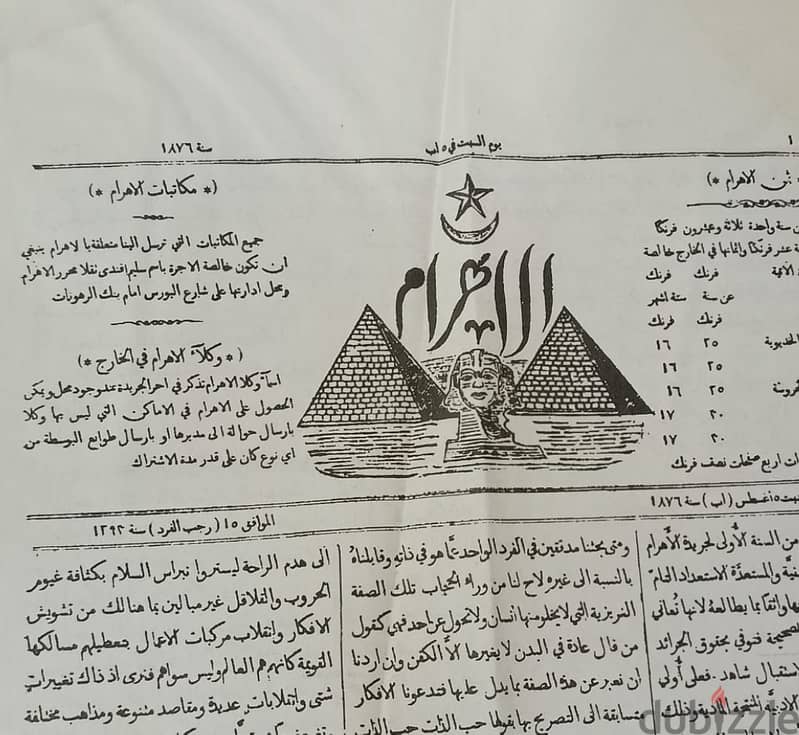 ١
يوم السبت في ٥ اب
سنة ١٨٧٦
ثمن الاهرام *)
ن سنة واحدة ثلاثة وعشرون فرنكا
ة عشر فرنكا واثمانها في الخارج خالصة
فرنك فرنك
عن سنة ستة اشهر
فرنك فرنك
الخديوية ٢٥ ١٦
٢٥ ١٦
٢٥ ١٦
٣٠ ١٧
٣٠ ١٧
ات اربع صفحات نصف فرنك
الاهرام
(* مكاتبات الاهرام *)
جميع المكاتبات التي ترسل الينا متعلقة بالاهرام ينبغي
ان تكون خالصة الاجرة باسم سليم افندي نقلا محرر الاهرام
ومحل ادارتها على شارع البورس امام بنك الرهونات
(* وكلآء الاهرام في الخارج *)
اسمآء وكلا الاهرام تذكر في اخر الجريدة عند وجود محل ويمكن
الحصول على الاهرام في الاماكن التي ليس بها وكلا
بارسال حوالة الى مديرها او بارسال طوابع البوسطة من
اي نوع كان على قدر مدة الاشتراك
سبت ٥ اغسطس (اب) سنة ١٨٧٦
الموافق ١٥ (رجب الفرد) سنة ١٢٩٣
من السنة الأولى لجريدة الأهرام
نية والمستعدَّة الاستعداد التامّ
ها واثقا بما يطالعهُ لانها تُعاني
الصحيحة فتوفي بحقوق الجرائد
استقبال شاهد. فعلى أُولي
الادبيَّة المنتجة المادية وذلك
ومتى بحثنا مدققين في الفرد الواحد عمَّا هو في ذاته وقابلناهُ
بالنسبة الى غيره لاح لنا من وراء الحجاب تلك الصفة
الغريزية التي لا يخلو منها انسان ولا تحول عن احد فهي كقول
من قال عادة في البدن لا يغيرها الاَّ الكفن وإن اردنا
ان نعبر عن هذه الصفة بما يدل عليها فتدعونا الافكار
متسابقة الى التصريح بها بقولها حب الذات حب الذات
الى هدم الراحة ليستروا نبراس السلام بكثافة غيوم
الحروب والقلاقل غير مبالين بما هنالك من تشويش
الافكار وانقلاب مركبات الاعمال بتعطيلهم مسالكها
القويمة كانهم هم العالم وليس سواهم فنرى اذ ذاك تغييراتٍ
شتى وانقلابات عديدة ومقاصد متنوعة ومذاهب مختلفة
dubizzle